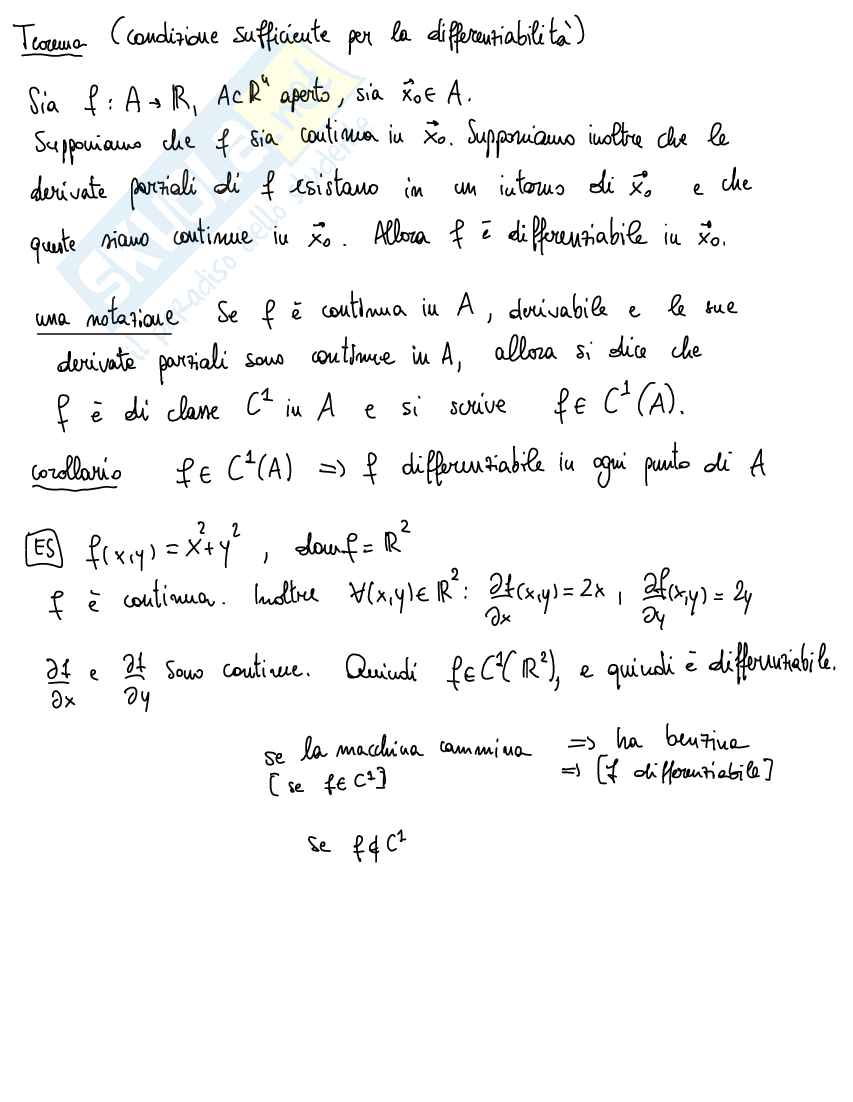 Teorema (condizione sufficiente per la differenziabilità)
Sia f : A → R, A⊂Rⁿ aperto, sia x⃗₀ ∈ A.
Supponiamo che f sia continua in x⃗₀. Supponiamo inoltre che le
derivate parziali di f esistano in un intorno di x⃗₀ e che
queste siano continue in x⃗₀. Allora f è differenziabile in x⃗₀.
una notazione Se f è continua in A, derivabile e le sue
derivate parziali sono continue in A, allora si dice che
f è di classe C¹ in A e si scrive f ∈ C¹(A).
corollario f ∈ C¹(A) => f differenziabile in ogni punto di A
ES f(x,y) = x²+y², dom f = R²
f è continua. Inoltre ∀(x,y)∈R²: ∂f/∂x(x,y) = 2x, ∂f/∂y(x,y) = 2y
∂f/∂x e ∂f/∂y sono continue. Quindi f∈C¹(R²), e quindi è differenziabile.
se la macchina cammina => ha benzina
[se f∈C¹] => [f differenziabile]
se f∉C¹
SKUOLA.net
il paradiso dello studente